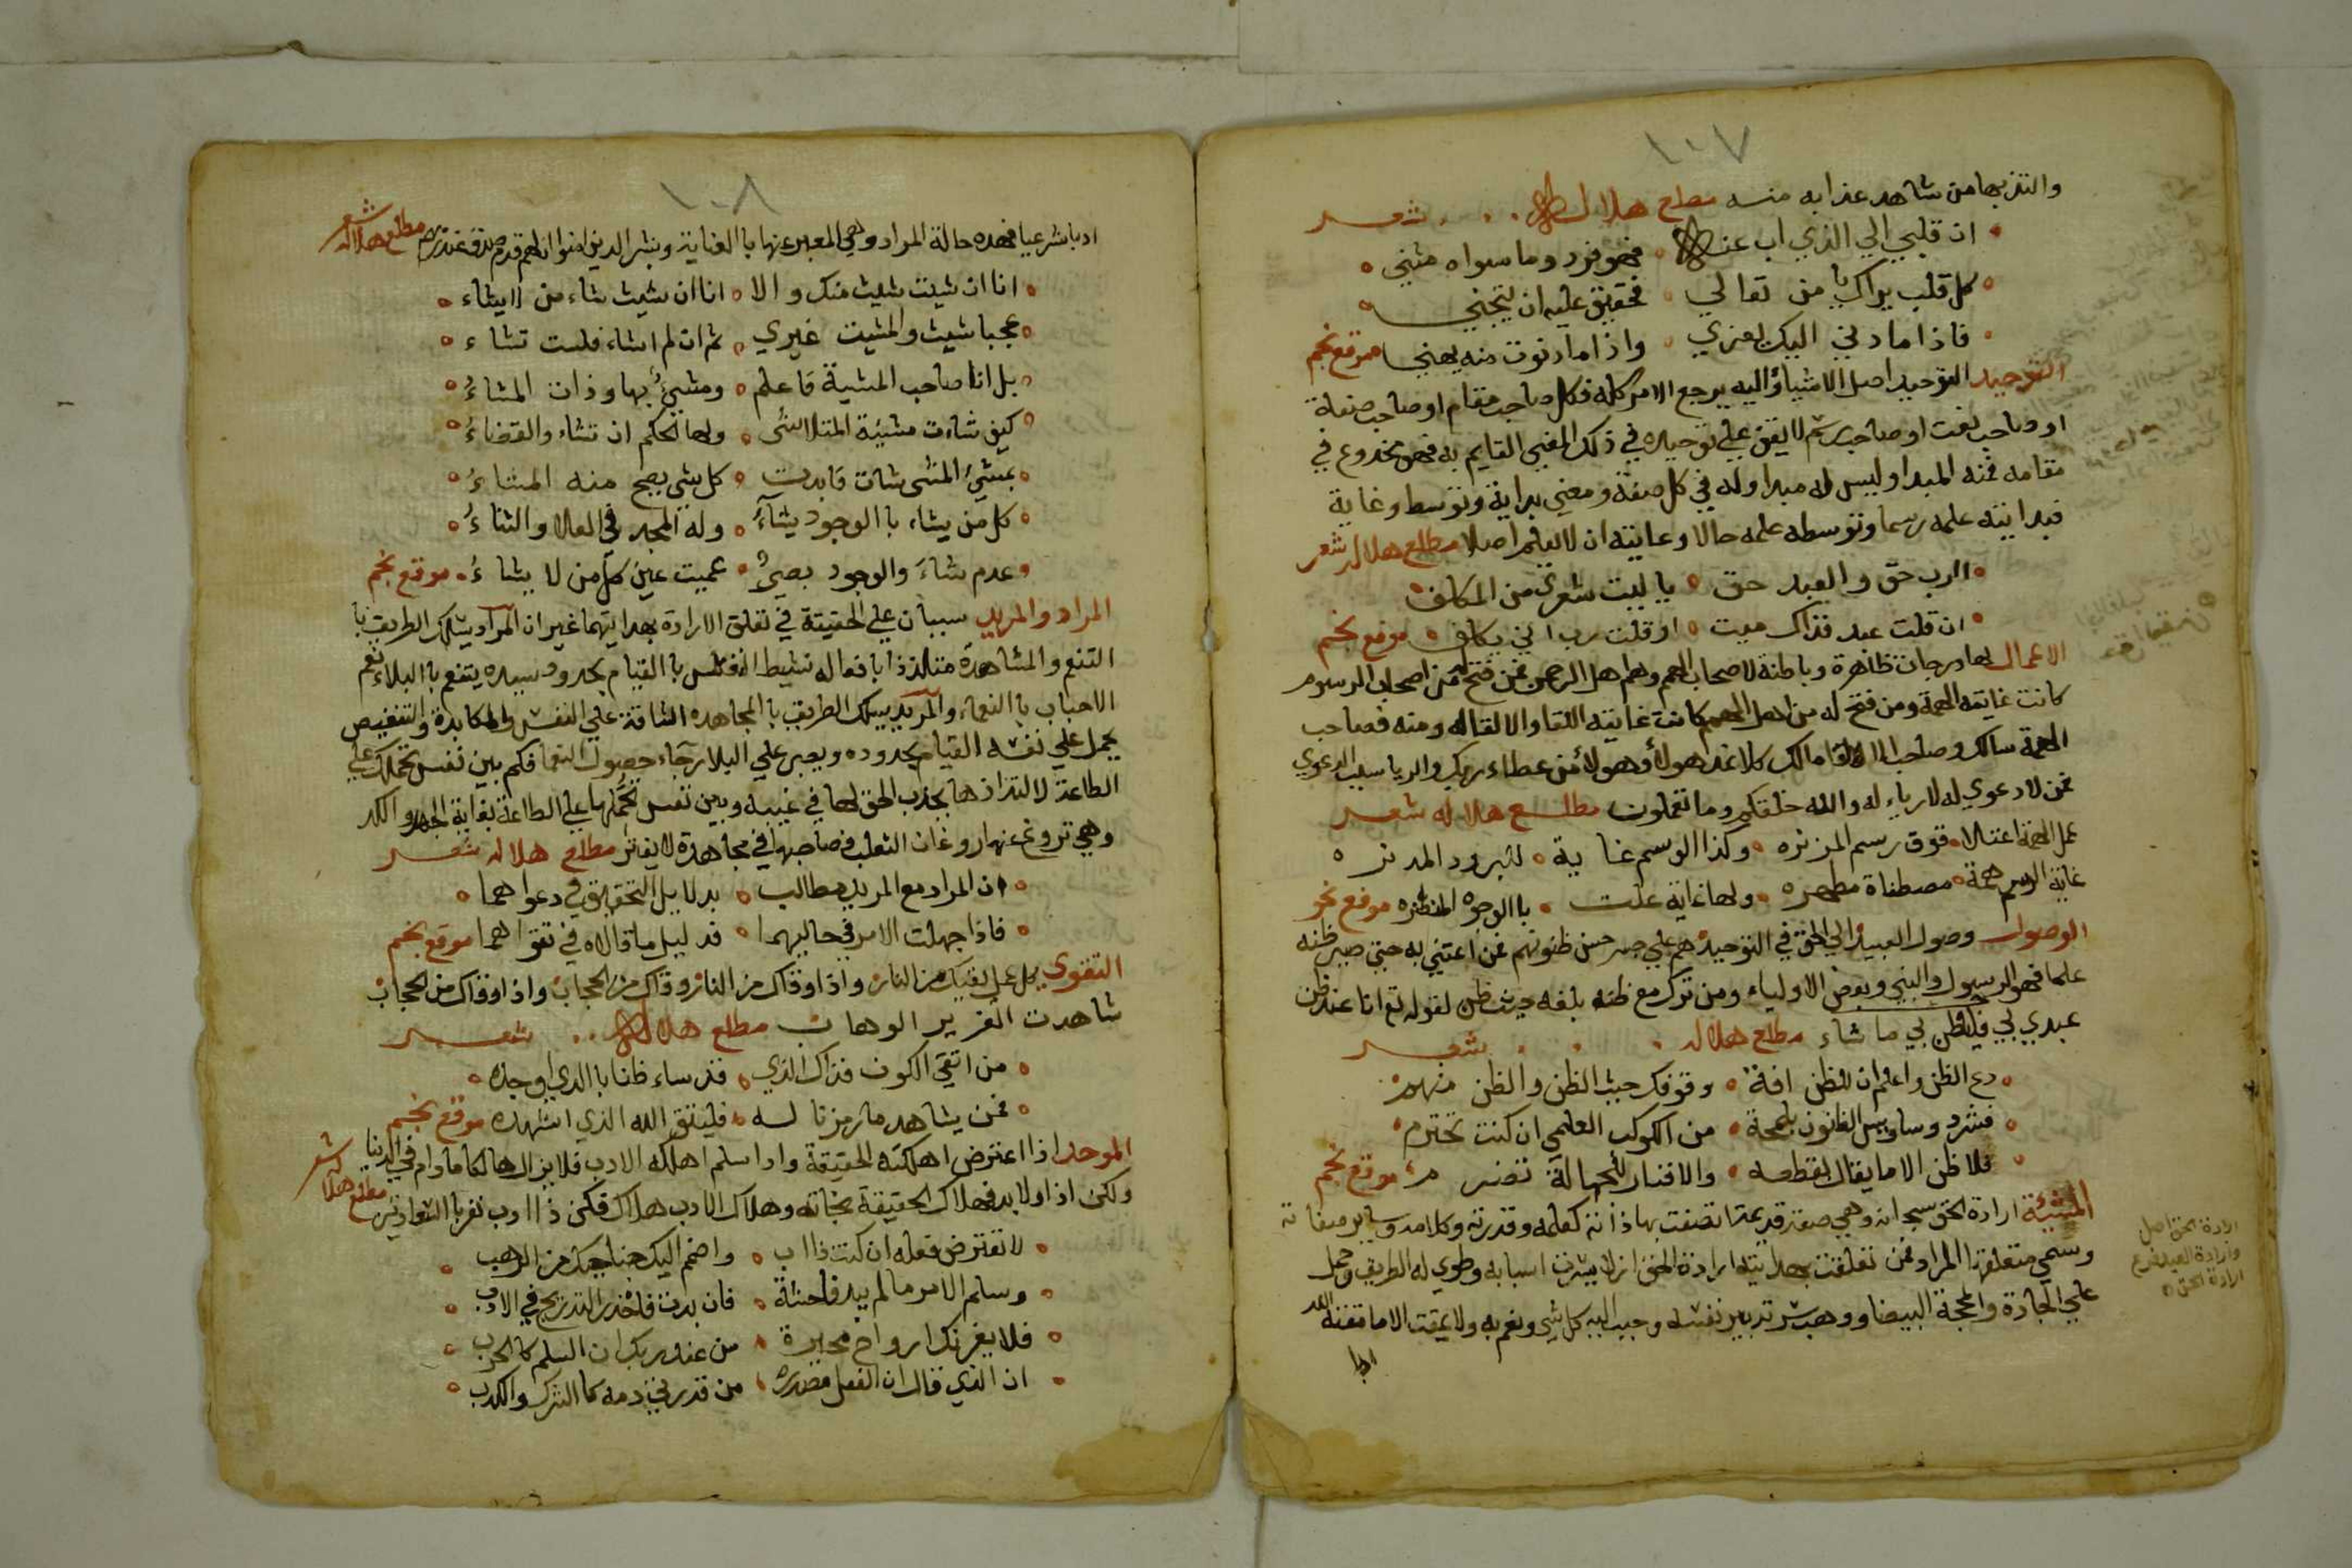 ١٠٧
والتذ بها من شاهد عذابه منه مطلع هلال شعر
ان قلبي الي الذي اب عنه فهو فرد وما سواه مثني
كل قلب يراك يا من تعالي فحقيق عليه ان يتجني
فاذا ما دني اليك لعزي واذا ما دنوت منه يهني موقع نجم
التوحيد التوحيد اصل الاشياء واليه يرجع الامر كله فكل صاحب مقام او صاحب صفة
او صاحب نعت او صاحب رسم لا يقف علي توحيده في ذلك المعني القايم به فهو مخدوع في
مقامه فمنه المبدا وليس له مبدا وله في كل صفة ومعني بداية وتوسط وغاية
فبدايته علمه رسما وتوسطه علمه حالا وغايته ان لا يعلم اصلا مطلع هلال شعر
الرب حق والعبد حق يا ليت شعري من المكلف
ان قلت عبد فذاك ميت او قلت رب اني يكلف موقع نجم
الاعمال لها درجات ظاهرة وباطنة لاصحاب الهمم وهم اهل الرحمن فمن فتح له من اصحاب الرسوم
كانت غايته الهمة ومن فتح له من اهل الهمم كانت غايته اللقا والالقا له ومنه فصاحب
الهمة سالك وصاحب اللقا مالك كلا نمد هولاء وهولاء من عطاء ربك والريا سبب الدعوي
فمن لا دعوي له لا رياء له والله خلقكم وما تعملون مطلع هلاله شعر
عمل الهمة اعتلا فوق رسم المزنره وكذا الوسم غاية لبرود المدنره
غاية الوسم همة مصطفاة مطهره ولها غاية علت با الوجوه المنظره موقع نجم
الوصول وصول العبيد الي الحق في التوحيد هم علي جسر حسن ظنونهم فمن اعتني به حتي صير ظنه
علما فهو الرسول والنبي وبعض الاولياء ومن ترك مع ظنه بلغه حيث ظن لقوله تع انا عند ظن
عبدي بي فليظن بي ما شاء مطلع هلال شعر
دع الظن واعلم ان للظن افة وقوفك حيث الظن والظن متهم
فشرد وساويس الظنون بلمحة من الكوكب العلمي ان كنت تحترم
فلا ظن الا ما يقال بقطعه والا فنار للجهالة تضرم موقع نجم
المشيئة ارادة الحق سبحانه وهي صفة قديمة اتصفت بها ذاته كعلمه وقدرته وكلامه وساير صفاته
وسمي متعلقها المراد فمن تعلقت بهدايته ارادة الحق ازلا يسرت اسبابه وطوي له الطريق وحمل
علي الجادة والمحجة البيضا ووهب سر تدبير نفسه وحبب اليه كل شي ونعم به ولا يمقت الا ما مقته الله
ادبا
ارادة الحق اصل
وارادة العبد فرع
ارادة الحق
١٠٨
ادبا شرعيا فهذه حالة المراد وهي المعبر عنها با العناية وبشر الذين امنوا ان لهم قدم صدق عند ربهم مطلع هلاله شعر
انا ان شيت شيت منك والا انا ان شيت شاء من لا يشاء
عجبا شيت والمشيت غيري ثم ان لم اشاء فلست تشاء
بل انا صاحب المشية فاعلم ومشيئ بها وذات المشاء
كيف شاءت مشيئة المتلاشي ولها الحكم ان تشاء والقضاء
بمشيئ المشي شات فابدت كل شي يصح منه المشاء
كل من يشاء با الوجود يشاء وله المجد في العلا والثناء
وعدم شاء والوجود بصير عميت عين كل من لا يشاء موقع نجم
المراد والمريد سببان علي الحقيقة في تعلق الارادة بهدايتهما غير ان المراد يسلك الطريق با
التنعم والمشاهدة متلذذا بافعاله نشيط النفس با القيام بحدود سيده يتنعم با البلاء تنعم
الاحباب با النعماء والمريد يسلك الطريق با المجاهده الشاقة علي النفس والمكابدة والتنغيص
يحمل علي نفسه القيام بحدوده ويصبر علي البلا رجاء حصول النعما فكم بين نفس تحملك علي
الطاعة لالتذاذها بجذب الحق لها في غيبه وبين نفس تحملها علي الطاعة بغاية الجهد والكد
وهي تروغ عنها روغان الثعلب فصاحبها في مجاهدة لا يفتر مطلع هلاله شعر
ان المراد مع المريد مطالب بدلايل التحقيق في دعواهما
فاذا جهلت الامر في حاليهما فدليل ما قالاه في تقواهما موقع نجم
التقوي كل عمل يقيك من النار واذا وقاك من النار وقاك من الحجاب واذا وقاك من الحجاب
شاهدت العزيز الوهاب مطلع هلال شعر
من اتقي الكون فذاك الذي قد ساء ظنا با الذي اوجده
فمن يشاهد ما رمزنا له فليتق الله الذي اشهده موقع نجم
الموحد اذا اعترض اهلكته الحقيقة واذا سلم اهلكه الادب فلا يزال هالكا ما دام في الدنيا
ولكن اذا ولا بد فهلاك الحقيقة نجاته وهلاك الادب هلاك فكن ذا ادب تفز با السعادتين مطلع هلاله شعر
لا تعترض فعله ان كنت ذا ادب واضمم اليك جناحيك من الرهب
وسلم الامر ما لم يبد فاحشة فان بدت فاحذر التدريج في الادب
فلا يغرنك ارواح مجيرة من عند ربك ان السلم كا الحرب
ان الذي قال ان الفعل مصدره من قدرتي ذمه كا الشرك والكذب